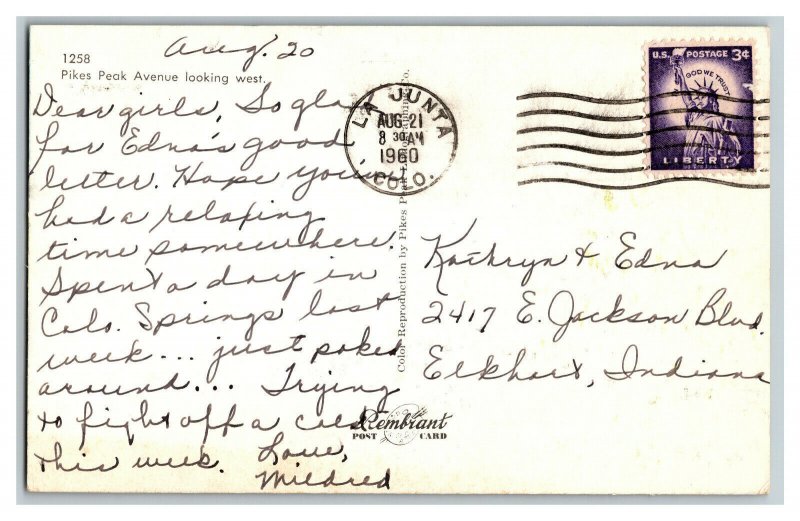 Aug. 20
1258
Pikes Peak Avenue looking west.
Dear girls, So glad
for Edna's good
letter. Hope you
had a relaxing
time somewhere.
Spent a day in
Colo. Springs last
week... just poked
around... Trying
to fight off a cold
this week. Love,
Mildred
LA JUNTA
AUG 21
8 30 AM
1960
COLO.
U.S. POSTAGE 3¢
IN GOD WE TRUST
LIBERTY
Color Reproduction by Pikes Peak
Co.
Kathryn & Edna
2417 E. Jackson Blvd.
Elkhart, Indiana
Rembrant
POST CARD